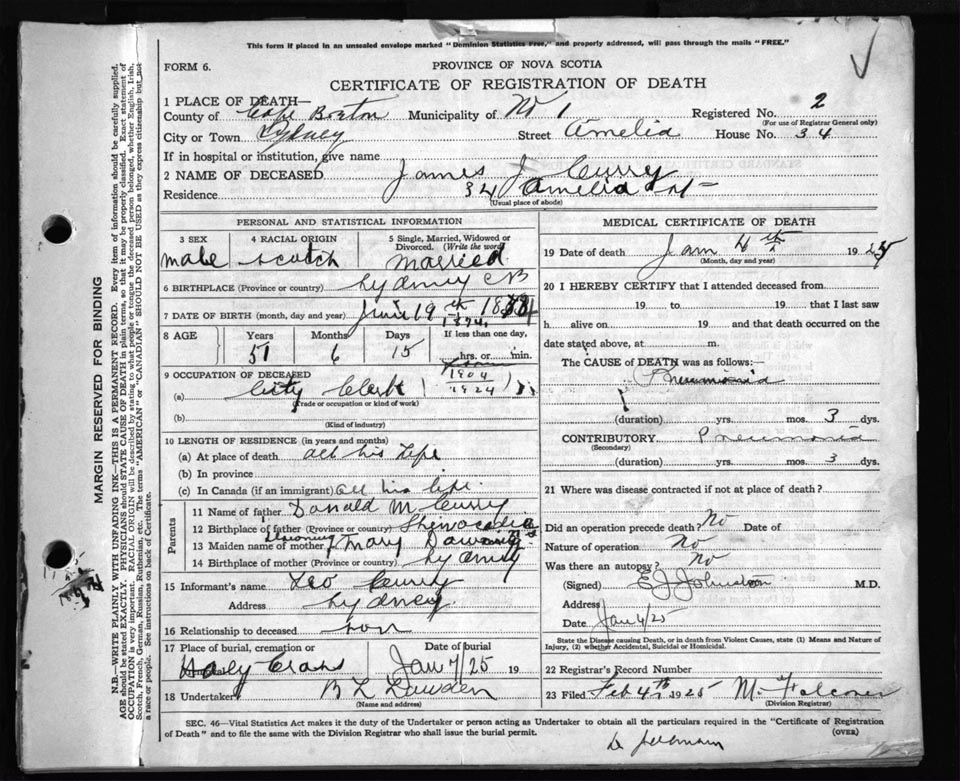 This form if placed in an unsealed envelope marked "Dominion Statistics Free," and properly addressed, will pass through the mails "FREE."
FORM 6.
PROVINCE OF NOVA SCOTIA
CERTIFICATE OF REGISTRATION OF DEATH
1 PLACE OF DEATH—
County of Cape Breton Municipality of No 1 Registered No. 2
(For use of Registrar General only)
City or Town Sydney Street Amelia House No. 34
If in hospital or institution, give name
2 NAME OF DECEASED James J Curry
Residence 34 Amelia St
(Usual place of abode)
PERSONAL AND STATISTICAL INFORMATION
3 SEX 4 RACIAL ORIGIN 5 Single, Married, Widowed or Divorced. (Write the word)
male scotch married
6 BIRTHPLACE (Province or country) Sydney CB
7 DATE OF BIRTH (month, day and year) June 19th
1874
8 AGE Years Months Days If less than one day,
51 6 15 hrs. or min.
9 OCCUPATION OF DECEASED 1904
(a) City Clerk 1924
(Trade or occupation or kind of work)
(b)
(Kind of industry)
10 LENGTH OF RESIDENCE (in years and months)
(a) At place of death all his life
(b) In province
(c) In Canada (if an immigrant) all his life
Parents
11 Name of father Donald M Curry
12 Birthplace of father (Province or country)
13 Maiden name of mother Mary
14 Birthplace of mother (Province or country) Sydney
15 Informant's name Leo Curry
Address Sydney
16 Relationship to deceased son
17 Place of burial, cremation or Date of burial
Holy Cross Jan 7/25 19
18 Undertaker B L
(Name and address)
MEDICAL CERTIFICATE OF DEATH
19 Date of death Jan 4th 1925
(Month, day and year)
20 I HEREBY CERTIFY that I attended deceased from
19 to 19 that I last saw
h alive on 19 and that death occurred on the
date stated above, at m.
The CAUSE of DEATH was as follows:—
Pneumonia
(duration) yrs. mos. 3 dys.
CONTRIBUTORY Pneumonia
(Secondary)
(duration) yrs. mos. 3 dys.
21 Where was disease contracted if not at place of death?
Did an operation precede death? No Date of
Nature of operation No
Was there an autopsy? No
(Signed) E J Johnston M.D.
Address
Date Jan 4/25
State the Disease causing Death, or in death from Violent Causes, state (1) Means and Nature of
Injury, (2) whether Accidental, Suicidal or Homicidal.
22 Registrar's Record Number
23 Filed Feb 4th 1925 M. Falconer
(Division Registrar)
SEC. 46—Vital Statistics Act makes it the duty of the Undertaker or person acting as Undertaker to obtain all the particulars required in the "Certificate of Registration
of Death" and to file the same with the Division Registrar who shall issue the burial permit.
(OVER)
MARGIN RESERVED FOR BINDING
N.B.—WRITE PLAINLY WITH UNFADING INK—THIS IS A PERMANENT RECORD. Every item of information should be carefully supplied.
AGE should be stated EXACTLY. PHYSICIANS should STATE CAUSE OF DEATH in plain terms, so that it may be properly classified. Exact statement of
OCCUPATION is very important. RACIAL ORIGIN will be described by stating to what people or tongue the deceased person belonged, whether English, Irish,
Scotch, French, German, Russian, Ruthenian, etc. The terms "AMERICAN" or "CANADIAN" SHOULD NOT BE USED as they express citizenship but not
a race or people. See instructions on back of Certificate.